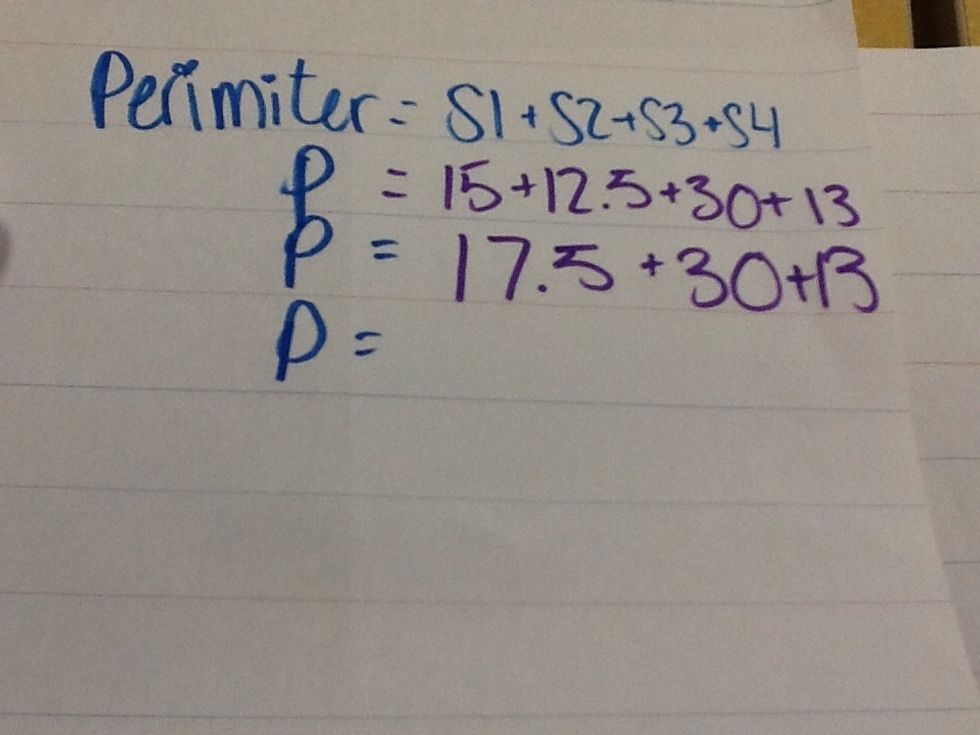 Perimiter = S1+S2+S3+S4
P = 15+12.5+30+13
P = 17.5+30+13
P =